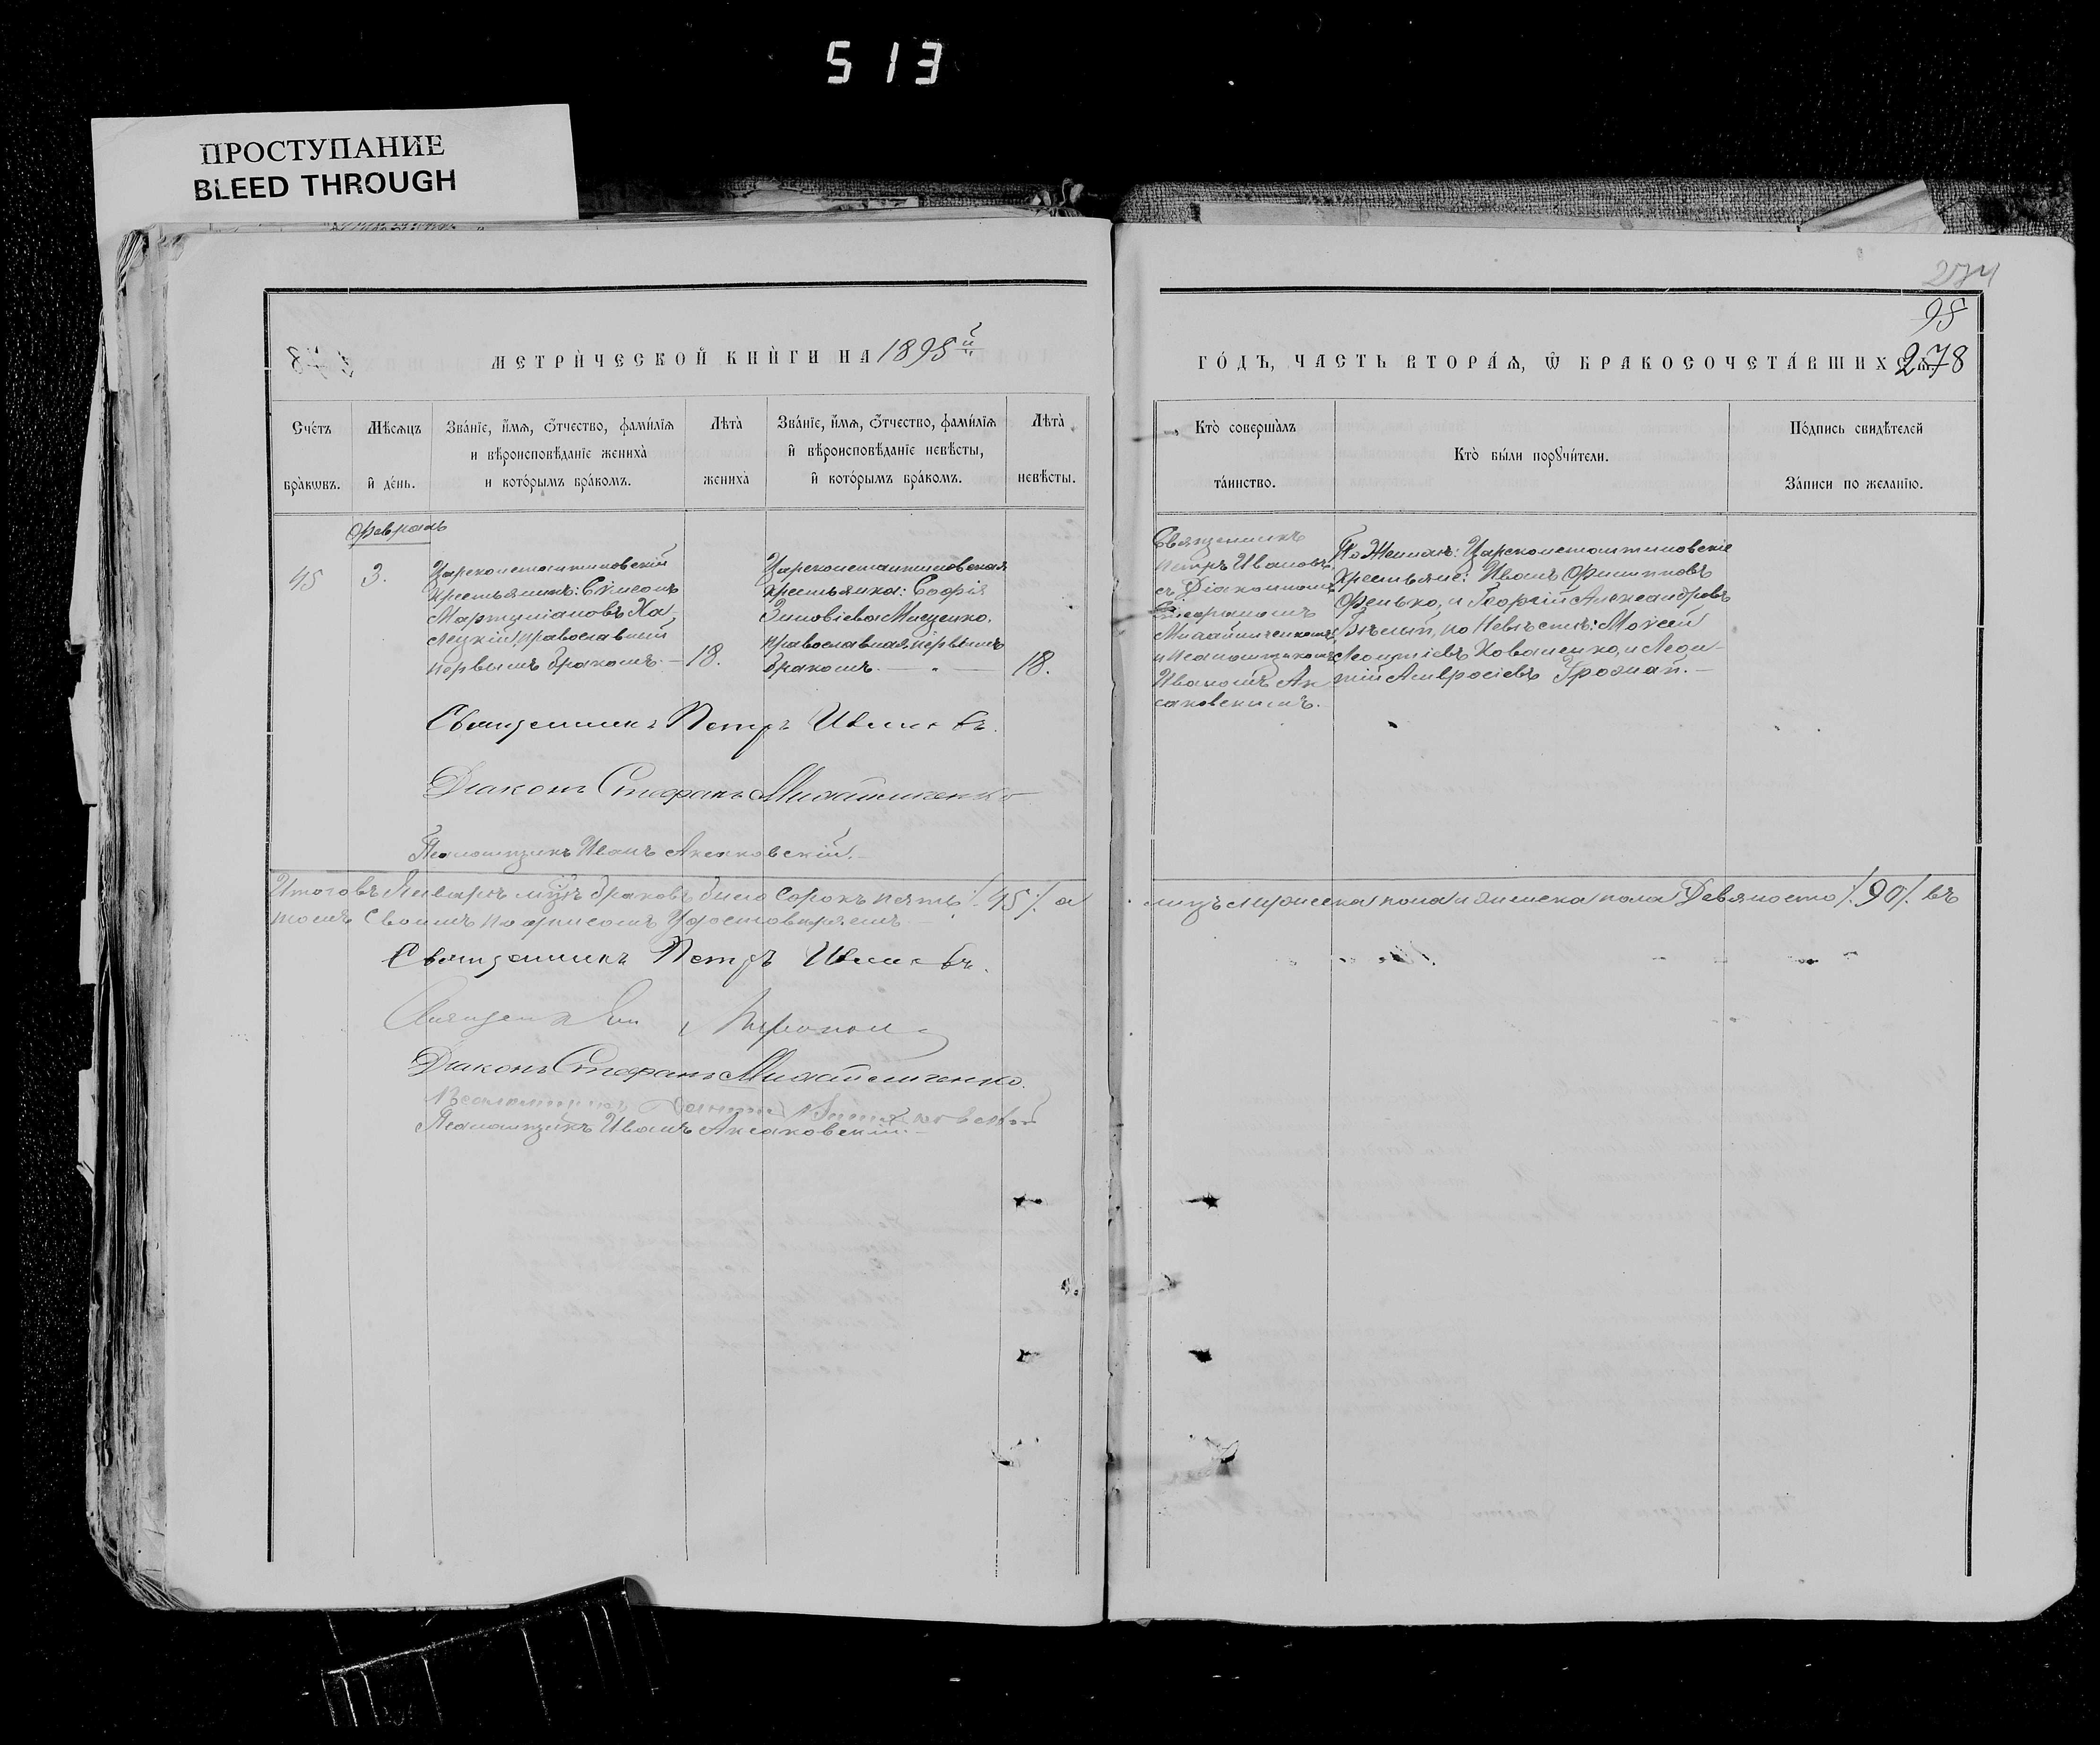 513
ПРОСТУПАНИЕ
BLEED THROUGH
274
98
278
МЕТРИ́ЧЕСКОЙ КНИ́ГИ НА 1898й
ГО́ДЪ, ЧАСТЬ ВТОРА́Ѧ, Ѿ БРАКОСОЧЕТА́ВШИХСѦ.
Сче́тъ бра̀кωвъ.
Мѣ́сѧцъ и҆ де́нь.
Зва́нїе, и҆́мѧ, ѻ҆́тчество, фами́лїѧ
и вѣроисповѣ́данїе жениха̀
и кото́рымъ бра́комъ.
Лѣта̀ жениха̀
Зва́нїе, и҆́мѧ, ѻ҆́тчество, фами́лїѧ
и҆ вѣроисповѣ́данїе невѣ́сты,
и҆ кото́рымъ бра́комъ.
Лѣта̀ невѣ́сты.
Кто̀ соверша́лъ та́инство.
Кто̀ бы́ли порꙋчи́тели.
По́дпись свидѣ́телей
За́писи по жела́нїю.
Февраль
45
3.
Цареконстантиновскій
крестьянинъ: Сѵмеонъ
Мартиніановъ Ха-
лецкій, православный
первымъ бракомъ. —
18.
Цареконстантиновская
крестьянка: Софія
Зиновіева Мищенко.
православная, первымъ
бракомъ. —
18.
Священникъ
Петръ Ивановъ,
съ Діакономъ
Стефаномъ
Михайличенкомъ
и Псаломщикомъ
Иваномъ Ак
саковскимъ.
По Женихѣ: Цареконстантиновскіе
крестьяне: Иванъ Филипповъ
Фенько, и Георгій Александровъ
Бѣлый, по Невѣстѣ: Моѵсей
Леонтіевъ Коваленко, и Леон-
тій Амвросіевъ Грознай. —
Священникъ Петръ Ивановъ.
Діаконъ Стефанъ Михайличенко
Псаломщикъ Иванъ Аксаковскій. —
Итого въ Январѣ м͠цѣ браковъ было сорокъ пять /. 45 /. а
лицъ мужеска пола и женска пола Девяносто /. 90 /. въ
томъ своимъ подписомъ удостовѣряемъ. —
Священникъ Петръ Ивановъ.
Діаконъ Стефанъ Михайличенко.
Псаломщикъ
Псаломщикъ Иванъ Аксаковскій. —